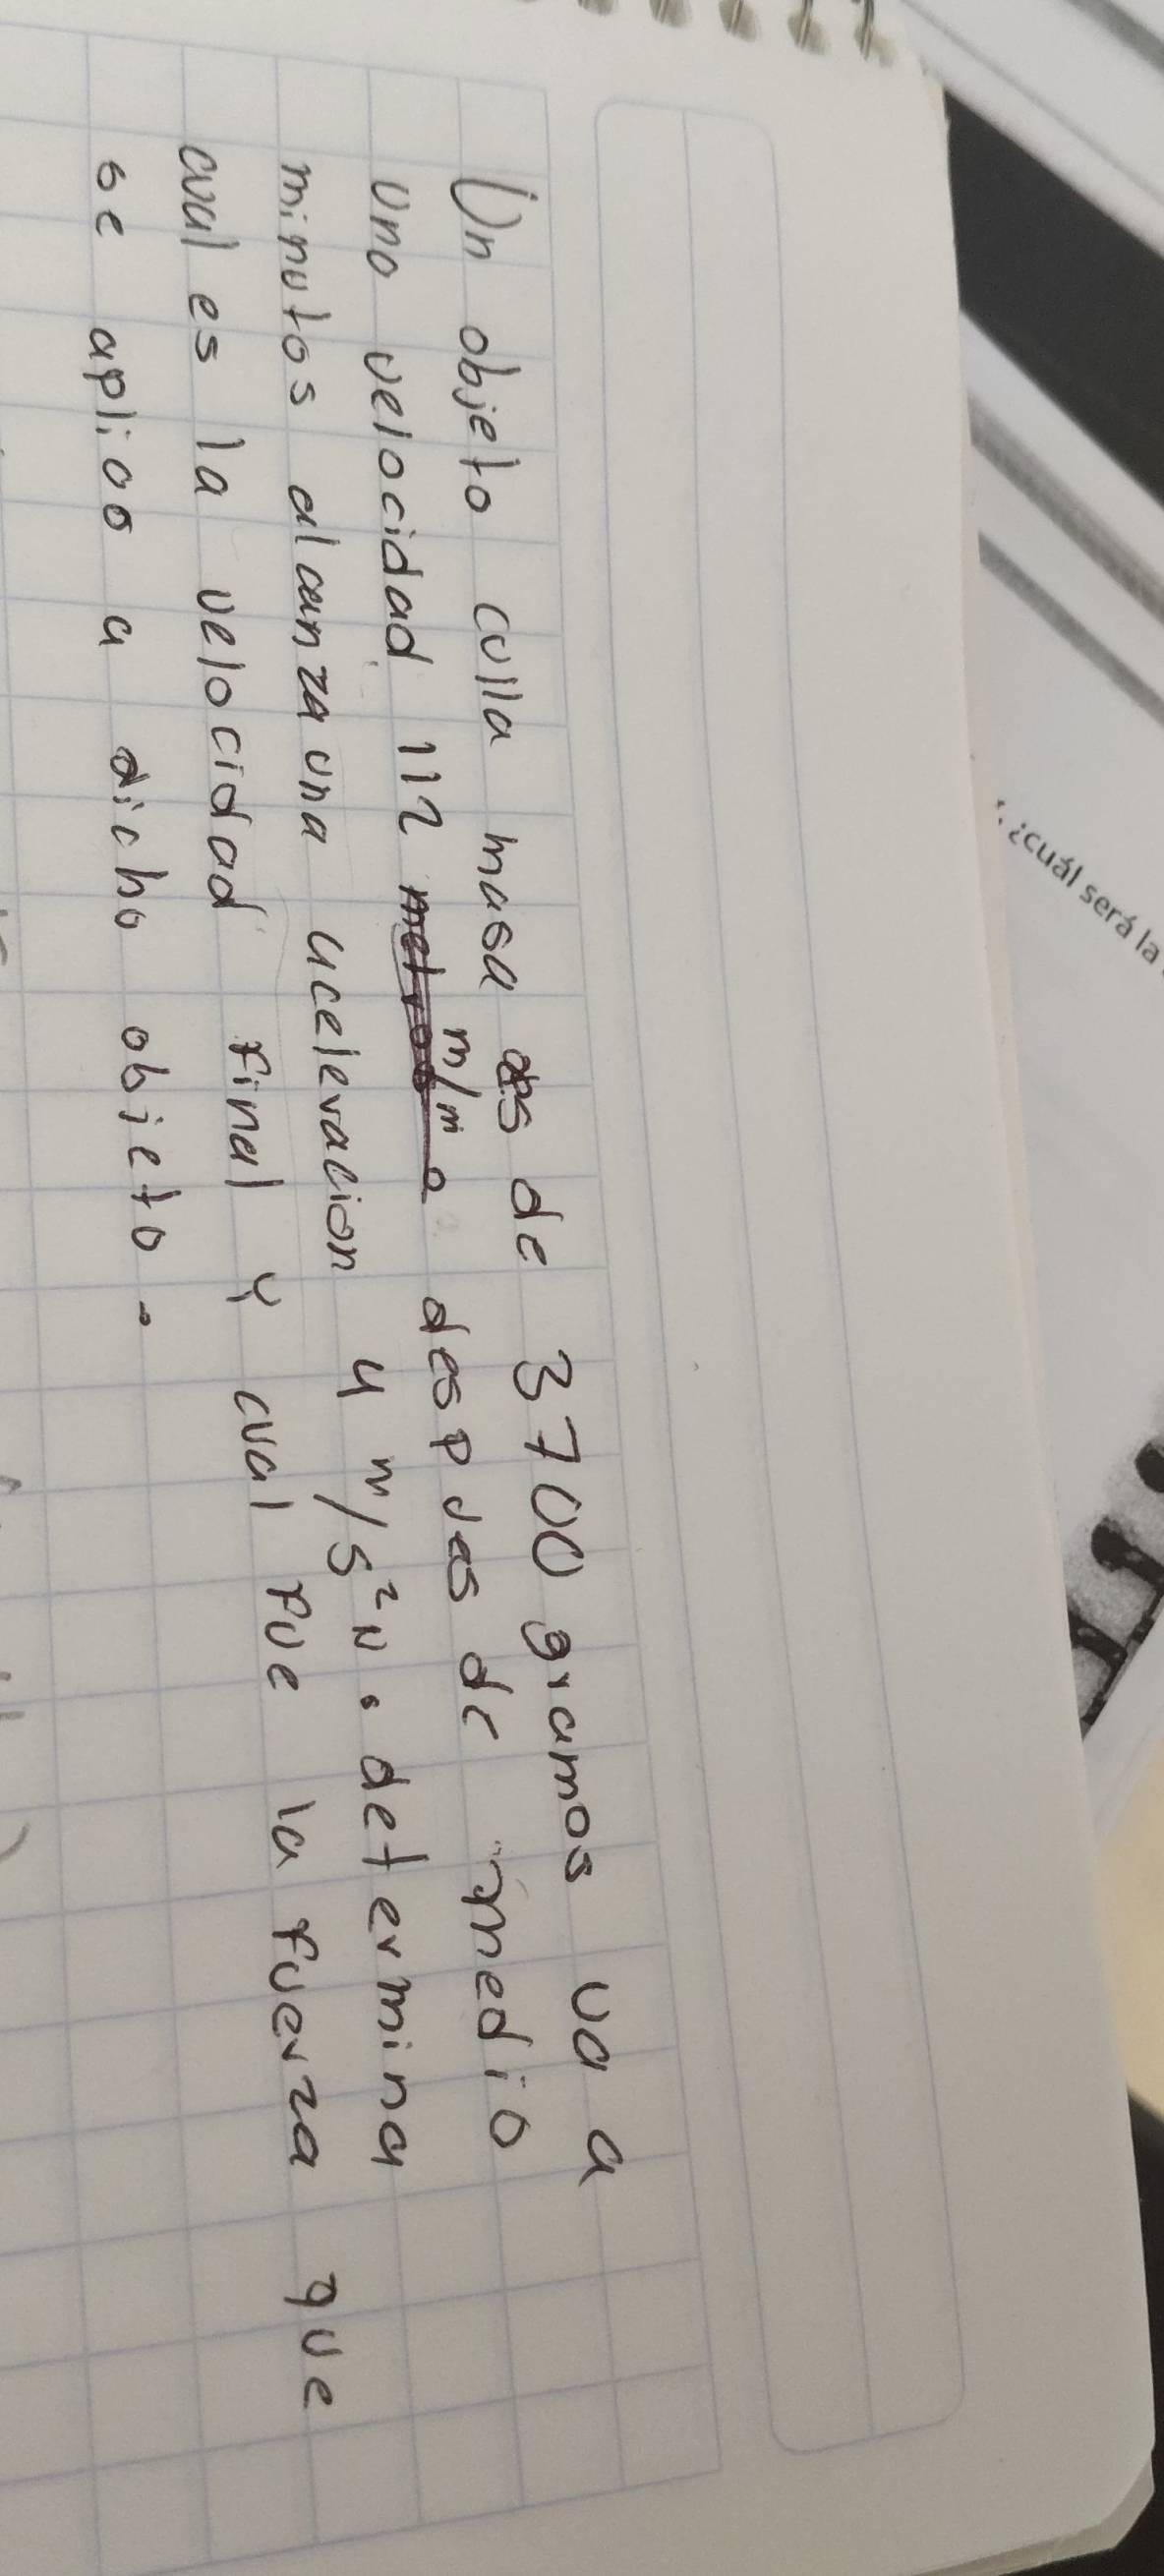 Un objeto culla masa es de 3700 gramos va a
una velocidad 112 m/m despues de medio
minutos alcanza una aceleracion 4 m/s² N. determina
cual es la velocidad final y cual fue la fuerza que
se aplico a dicho objeto.
¿cuál será la